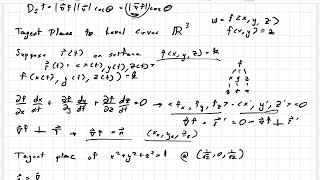 D_û f = |∇f||û| cosθ = |∇f| cosθ
Tangent Planes to Level Curves ℝ³
w = f(x, y, z)
f(x, y) = z
Suppose r⃗(t) on surface f(x, y, z) = k
r⃗(t) = <x(t), y(t), z(t)>
f(x(t), y(t), z(t)) = k
∂f/∂x dx/dt + ∂f/∂y dy/dt + ∂f/∂z dz/dt = 0 → <fx, fy, fz> · <x', y', z'> = 0
→ ∇f · r⃗' = 0 → ∇f ⊥ r⃗'
(x₀, y₀, z₀)
Tangent plane of x² + y² + z² = 1 @ (1/√2, 0, 1/√2)